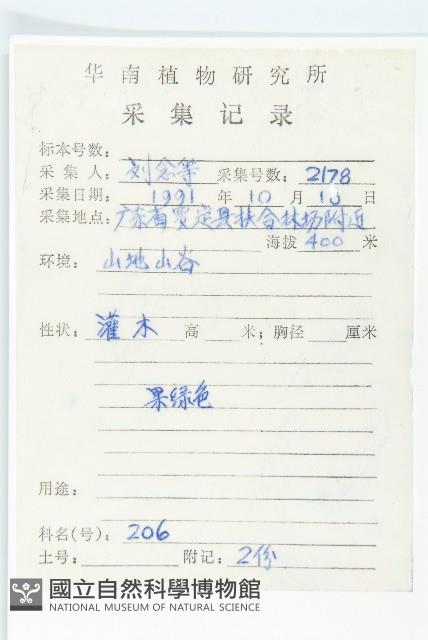 华南植物研究所
采集记录
标本号数:
采集人: 刘念等 采集号数: 2178
采集日期: 1991 年 10 月 日
采集地点: 广东省 定县扶合林场附近
海拔 400 米
环境: 山地山谷
性状: 灌木 高 米; 胸径 厘米
果绿色
用途:
科名(号): 206
土号: 附记: 2份
國立自然科學博物館
NATIONAL MUSEUM OF NATURAL SCIENCE